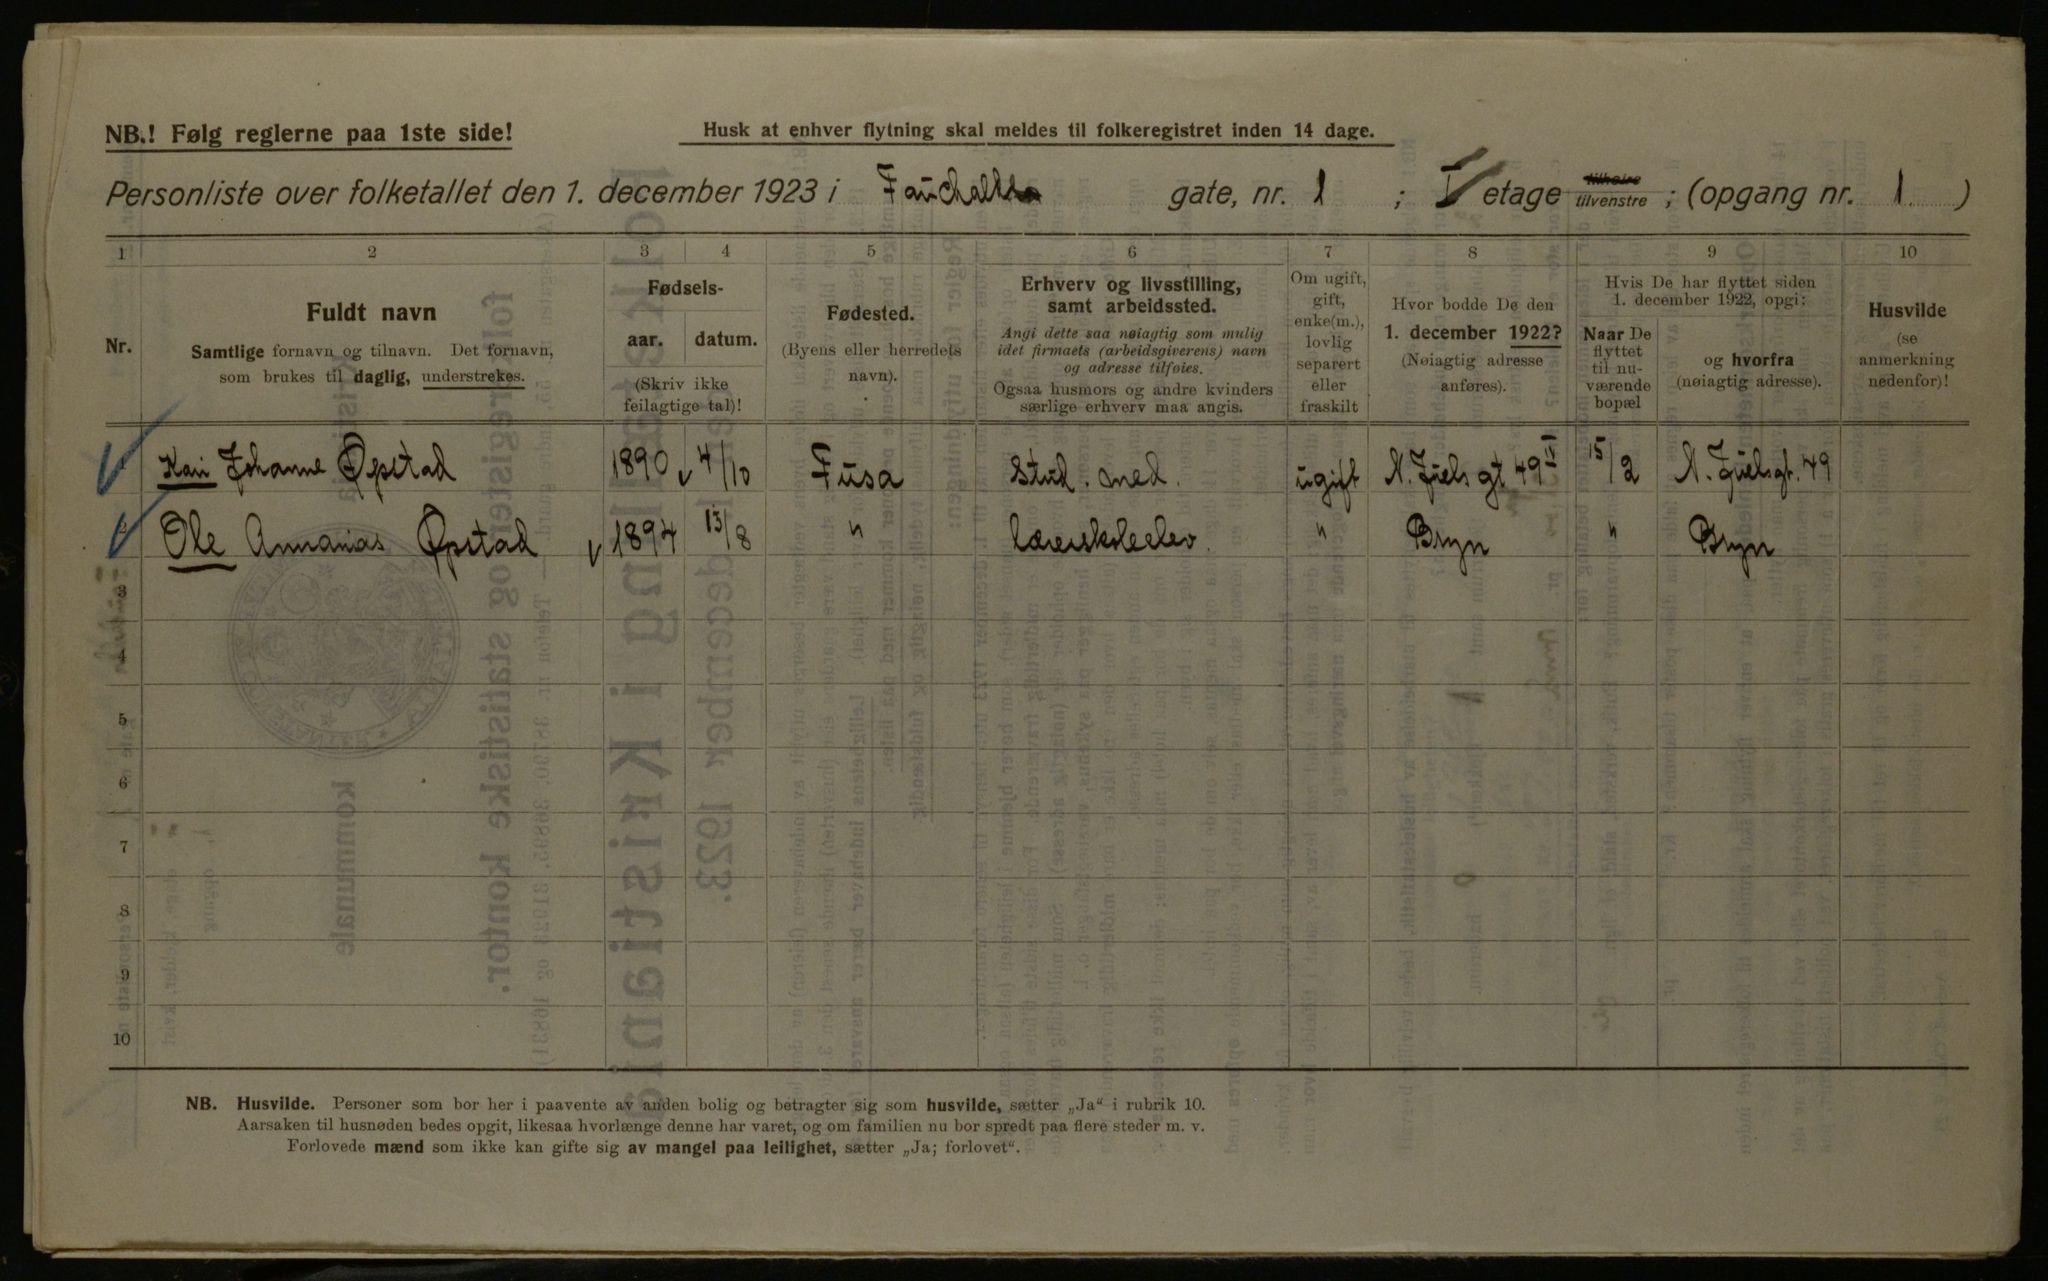 NB.! Følg reglerne paa 1ste side!
Husk at enhver flytning skal meldes til folkeregistret inden 14 dage.
Personliste over folketallet den 1. december 1923 i Fauchalds gate, nr. 1 ; etage tilhøire tilvenstre ; (opgang nr. 1. )
1 2 3 4 5 6 7 8 9 10
Nr.
Fuldt navn
Samtlige fornavn og tilnavn. Det fornavn,
som brukes til daglig, understrekes.
Fødsels-
aar. datum.
(Skriv ikke
feilagtige tal)!
Fødested.
(Byens eller herredets
navn).
Erhverv og livsstilling,
samt arbeidssted.
Angi dette saa nøiagtig som mulig
idet firmaets (arbeidsgiverens) navn
og adresse tilføies.
Ogsaa husmors og andre kvinders
særlige erhverv maa angis.
Om ugift,
gift,
enke(m.),
lovlig
separert
eller
fraskilt
Hvor bodde De den
1. december 1922?
(Nøiagtig adresse
anføres).
Hvis De har flyttet siden
1. december 1922, opgi:
Naar De
flyttet
til nu-
værende
bopæl
og hvorfra
(nøiagtig adresse).
Husvilde
(se
anmerkning
nedenfor)!
1 Kari Johanne Øpstad 1890 4/10 Fusa Stud. med. ugift N. Juels gt 49 IV 15/2 N. Juelsgt. 49
2 Ole Annanias Øpstad 1894 13/8 " Lærerskoleelev. " Bryn " Bryn
3
4
5
6
7
8
9
10
NB. Husvilde. Personer som bor her i paavente av anden bolig og betragter sig som husvilde, sætter „Ja“ i rubrik 10.
Aarsaken til husnøden bedes opgit, likesaa hvorlænge denne har varet, og om familien nu bor spredt paa flere steder m. v.
Forlovede mænd som ikke kan gifte sig av mangel paa leilighet, sætter „Ja; forlovet“.